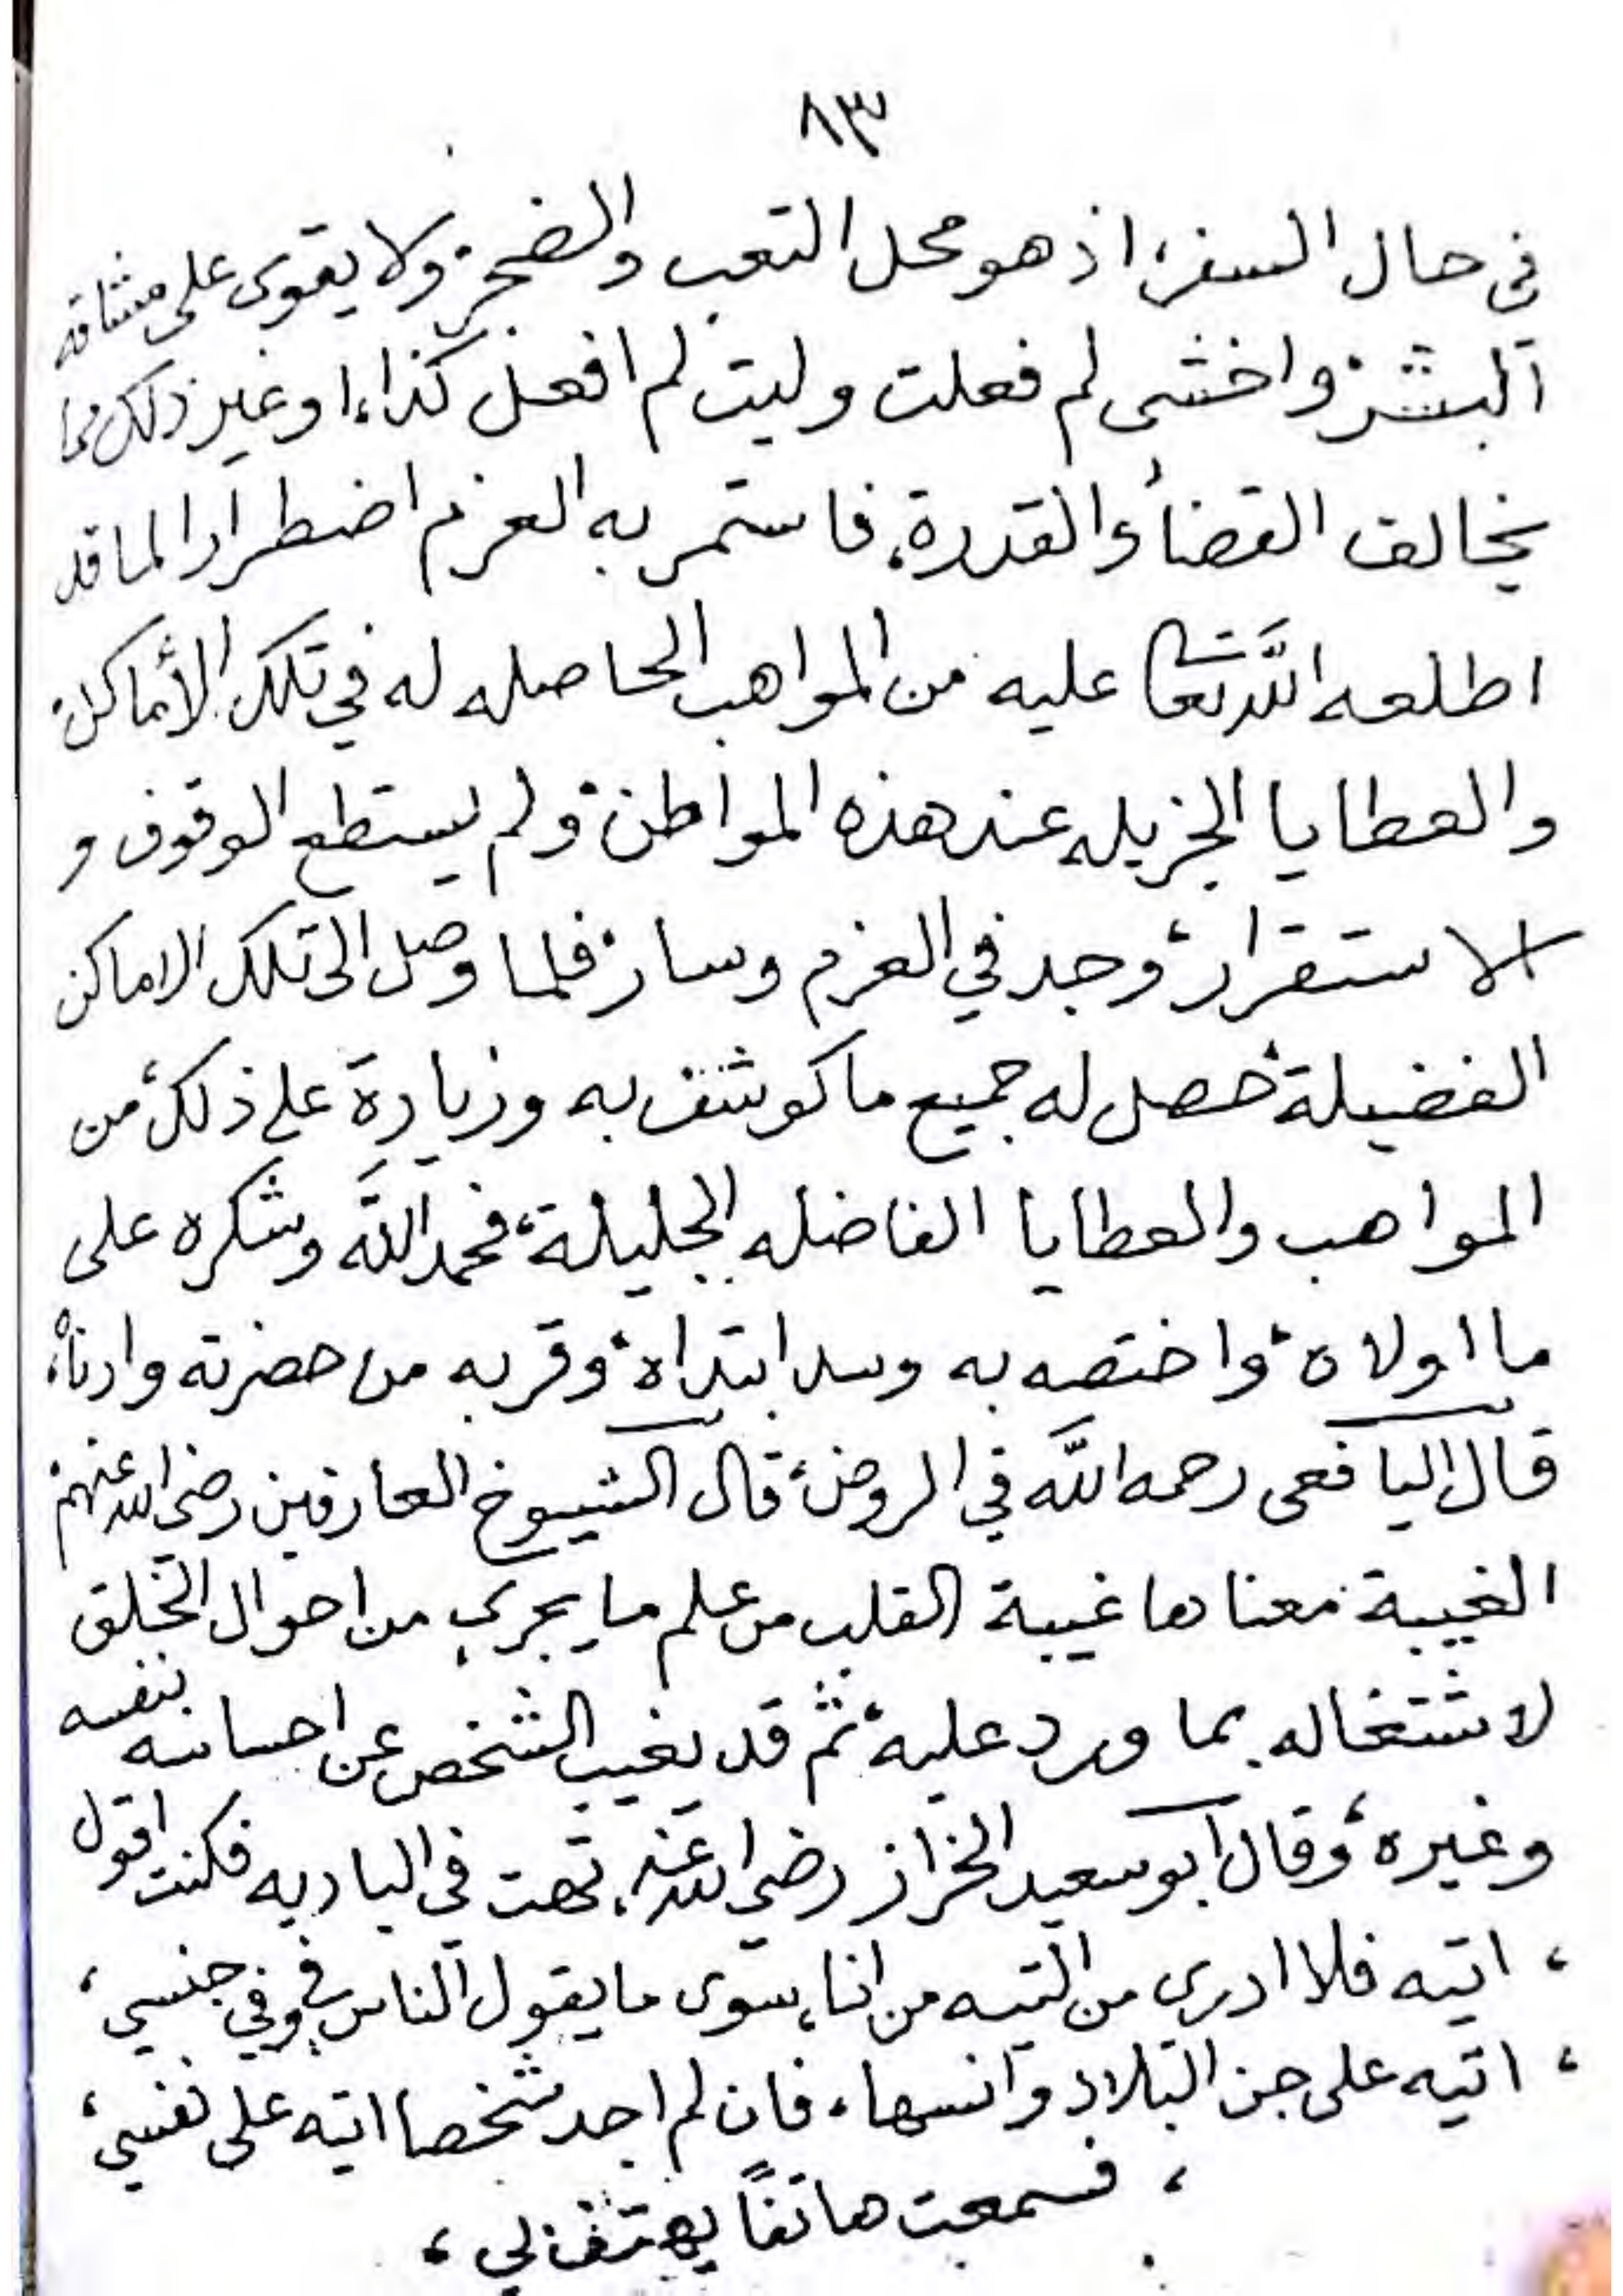 ٨٣
في حال السفر، اذ هو محل التعب والضجر، ولا يقوى على مشاقه
البشر، واخشى لم فعلت وليت لم افعل كذا، او غير ذلك مما
يخالف القضأ والقدرة، فاستمر به العزم اضطرارا لما قد
اطلعه الله تعالى عليه من المواهب الحاصله له في تلك الأماكن،
والعطايا الجزيله عند هذه المواطن، ولم يستطع الوقوف و
الاستقرار، وجد في العزم وسار، فلما وصل الى تلك الاماكن
الفضيلة، حصل له جميع ما كوشف به وزيادة على ذلك، من
المواهب والعطايا الفاضله الجليلة، فحمد الله وشكره على
ما اولاه، واختصه به ابتداه، وقربه من حضرته وادناه،
قال اليافعى رحمه الله في الروض، قال الشيوخ العارفين رضي الله عنهم،
الغيبة معناها غيبة القلب من علم ما يجري من احوال الخلق
لاشتغاله بما ورد عليه، ثم قد يغيب الشخص عن احسانه بنفسه
وغيره، وقال ابو سعيد الخراز رضي الله عنه، تهت في الباديه فكنت اقول
، اتيه فلا ادري من التيه من انا، سوى ما يقول الناس في وفي جنسي،
، اتيه على جن البلاد وانسها، فان لم اجد شخصا اتيه على نفسي،
، فسمعت هاتفًا يهتف لي،